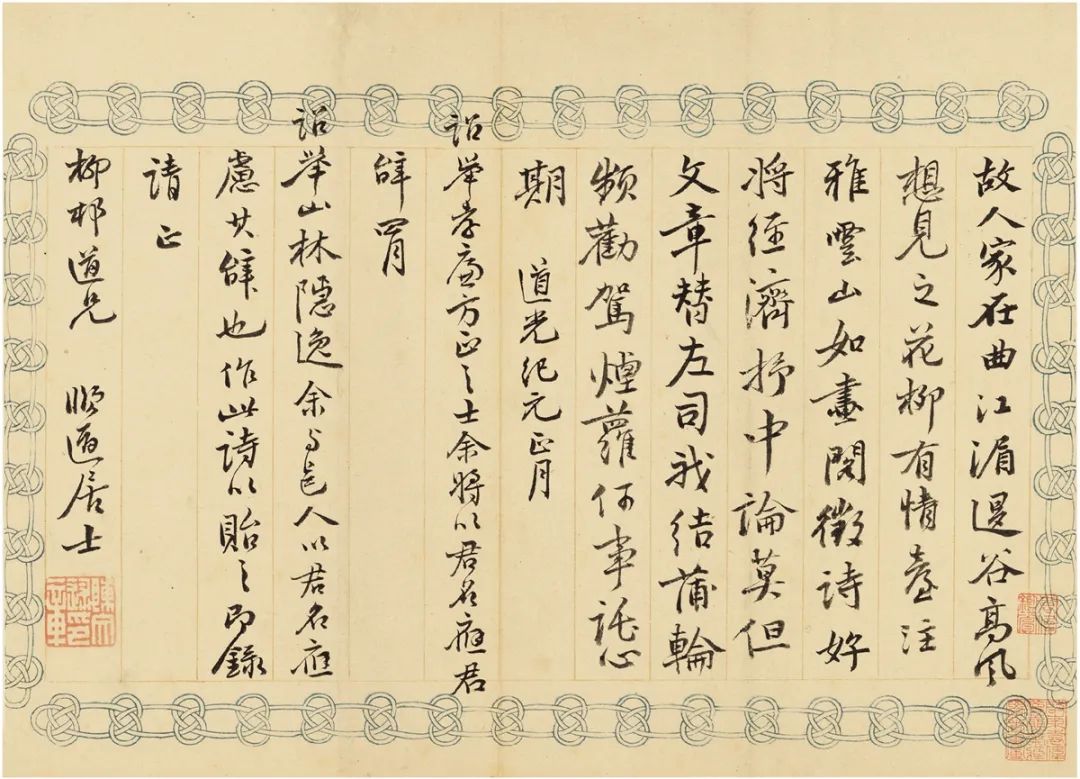 故人家在曲江湄遐谷高風
想見之花柳有情臺注
雅雲山如畫閣徵詩好
將經濟抒中論莫但
文章替左司我結蒲輪
頻勸駕煙蘿何事託心
期 道光紀元正月
詔舉孝廉方正之士余將以君名應君
辭四月
詔舉山林隱逸余與邑人以君名應
慮其辭也作此詩以貽之即錄
請正
柳邨道兄 居士